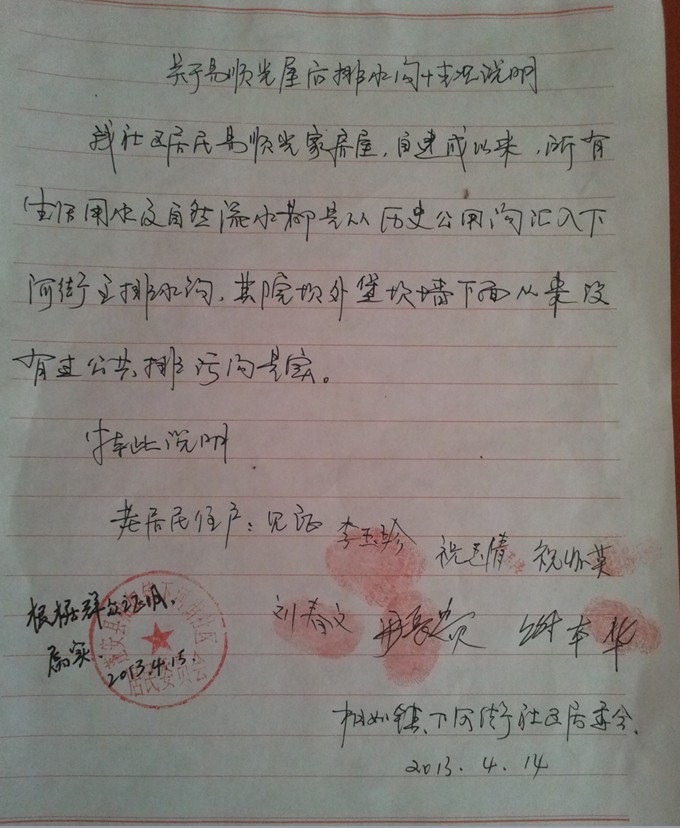 关于易顺光屋后排水沟情况说明
我社区居民易顺光家房屋，自建成以来，所有
生活用水及自然流水都是从历史公用沟汇入下
河街主排水沟，其院坝外堡坎墙下面从来没
有过公共排污沟是实。
特此说明
老居民住户：见证
李玉珍 祝玉倩 祝 英
刘春文 本华
根据群众证明，
属实。
2013.4.15.
居民委员会
相如镇下河街社区居委会.
2013.4.14